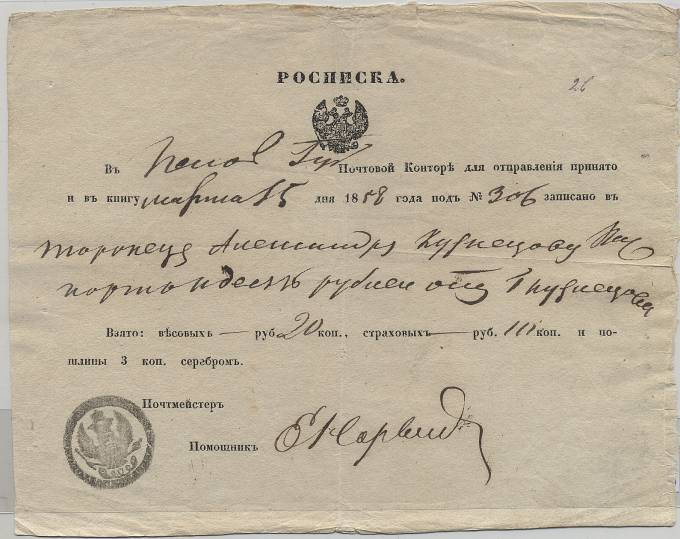 РОСПИСКА.
26
Въ Псков Губ Почтовой Конторѣ для отправленія принято
и въ книгу марта 15 дня 1858 года подъ № 306 записано въ
торопецъ Александру Кузнецову
рублей отъ Кузнецова
Взято: вѣсовыхъ — руб 20 коп., страховыхъ — руб. коп. и по-
шлины 3 коп. серебромъ.
Почтмейстеръ
Помощникъ